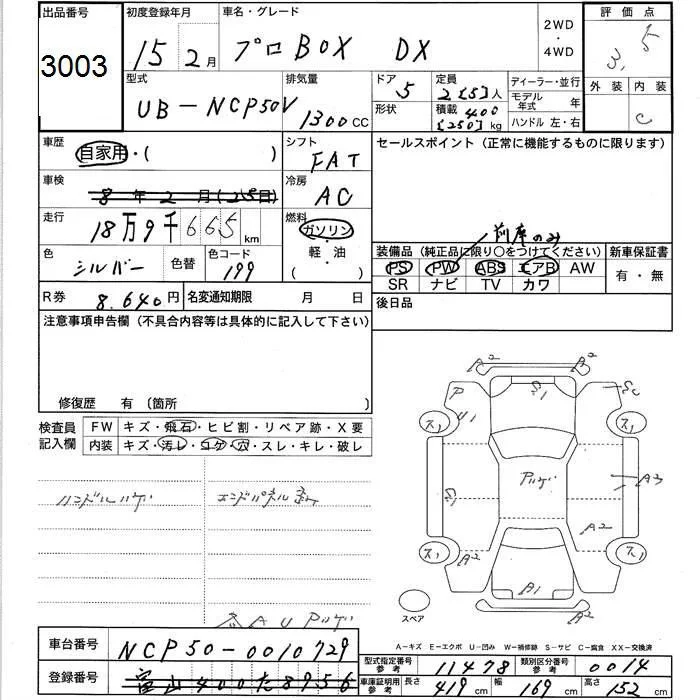 出品番号 初度登録年月 車名・グレード 評価点
3003 15 2月 プロBOX DX 2WD ・ 4WD 3.5
型式 排気量 ドア 定員 ディーラー・並行 外装 内装
UB-NCP50V 1300CC 5 2[5]人 モデル年式 年 C
形状 積載 400 [250]kg ハンドル 左・右
車歴 自家用・( ) シフト FAT セールスポイント (正常に機能するものに限ります)
車検 8年2月(25日) 冷房 AC
走行 18万9千665km 燃料 ガソリン・軽油 ( )
前席のみ
装備品 (純正品に限り○をつけてください) 新車保証書
色 シルバー 色替 色コード 199 PS PW ABS エアB AW 有・無
SR ナビ TV カワ
R券 8,640円 名変通知期限 月 日 後日品
注意事項申告欄 (不具合内容等は具体的に記入して下さい)
修復歴 有 〔箇所
検査員記入欄 FW キズ・飛石・ヒビ割・リペア跡・X要
内装 キズ・汚レ・コゲ・穴・スレ・キレ・破レ
A2 A2
P S1 SC
U1
ス1 ス1
ハンドルハゲ エンドパネル
S1 Pハゲ A3
A2
ス1 A2 ス1
A1
スペア A2
AU Pハゲ
A-キズ E-エクボ U-凹み W-補修跡 S-サビ C-腐食 XX-交換済
車台番号 NCP50-0010729
型式指定番号 参考 11478 類別区分番号 参考 0014
登録番号 富山400た8956
車庫証明用 参考 長さ 419cm 幅 169cm 高さ 152cm